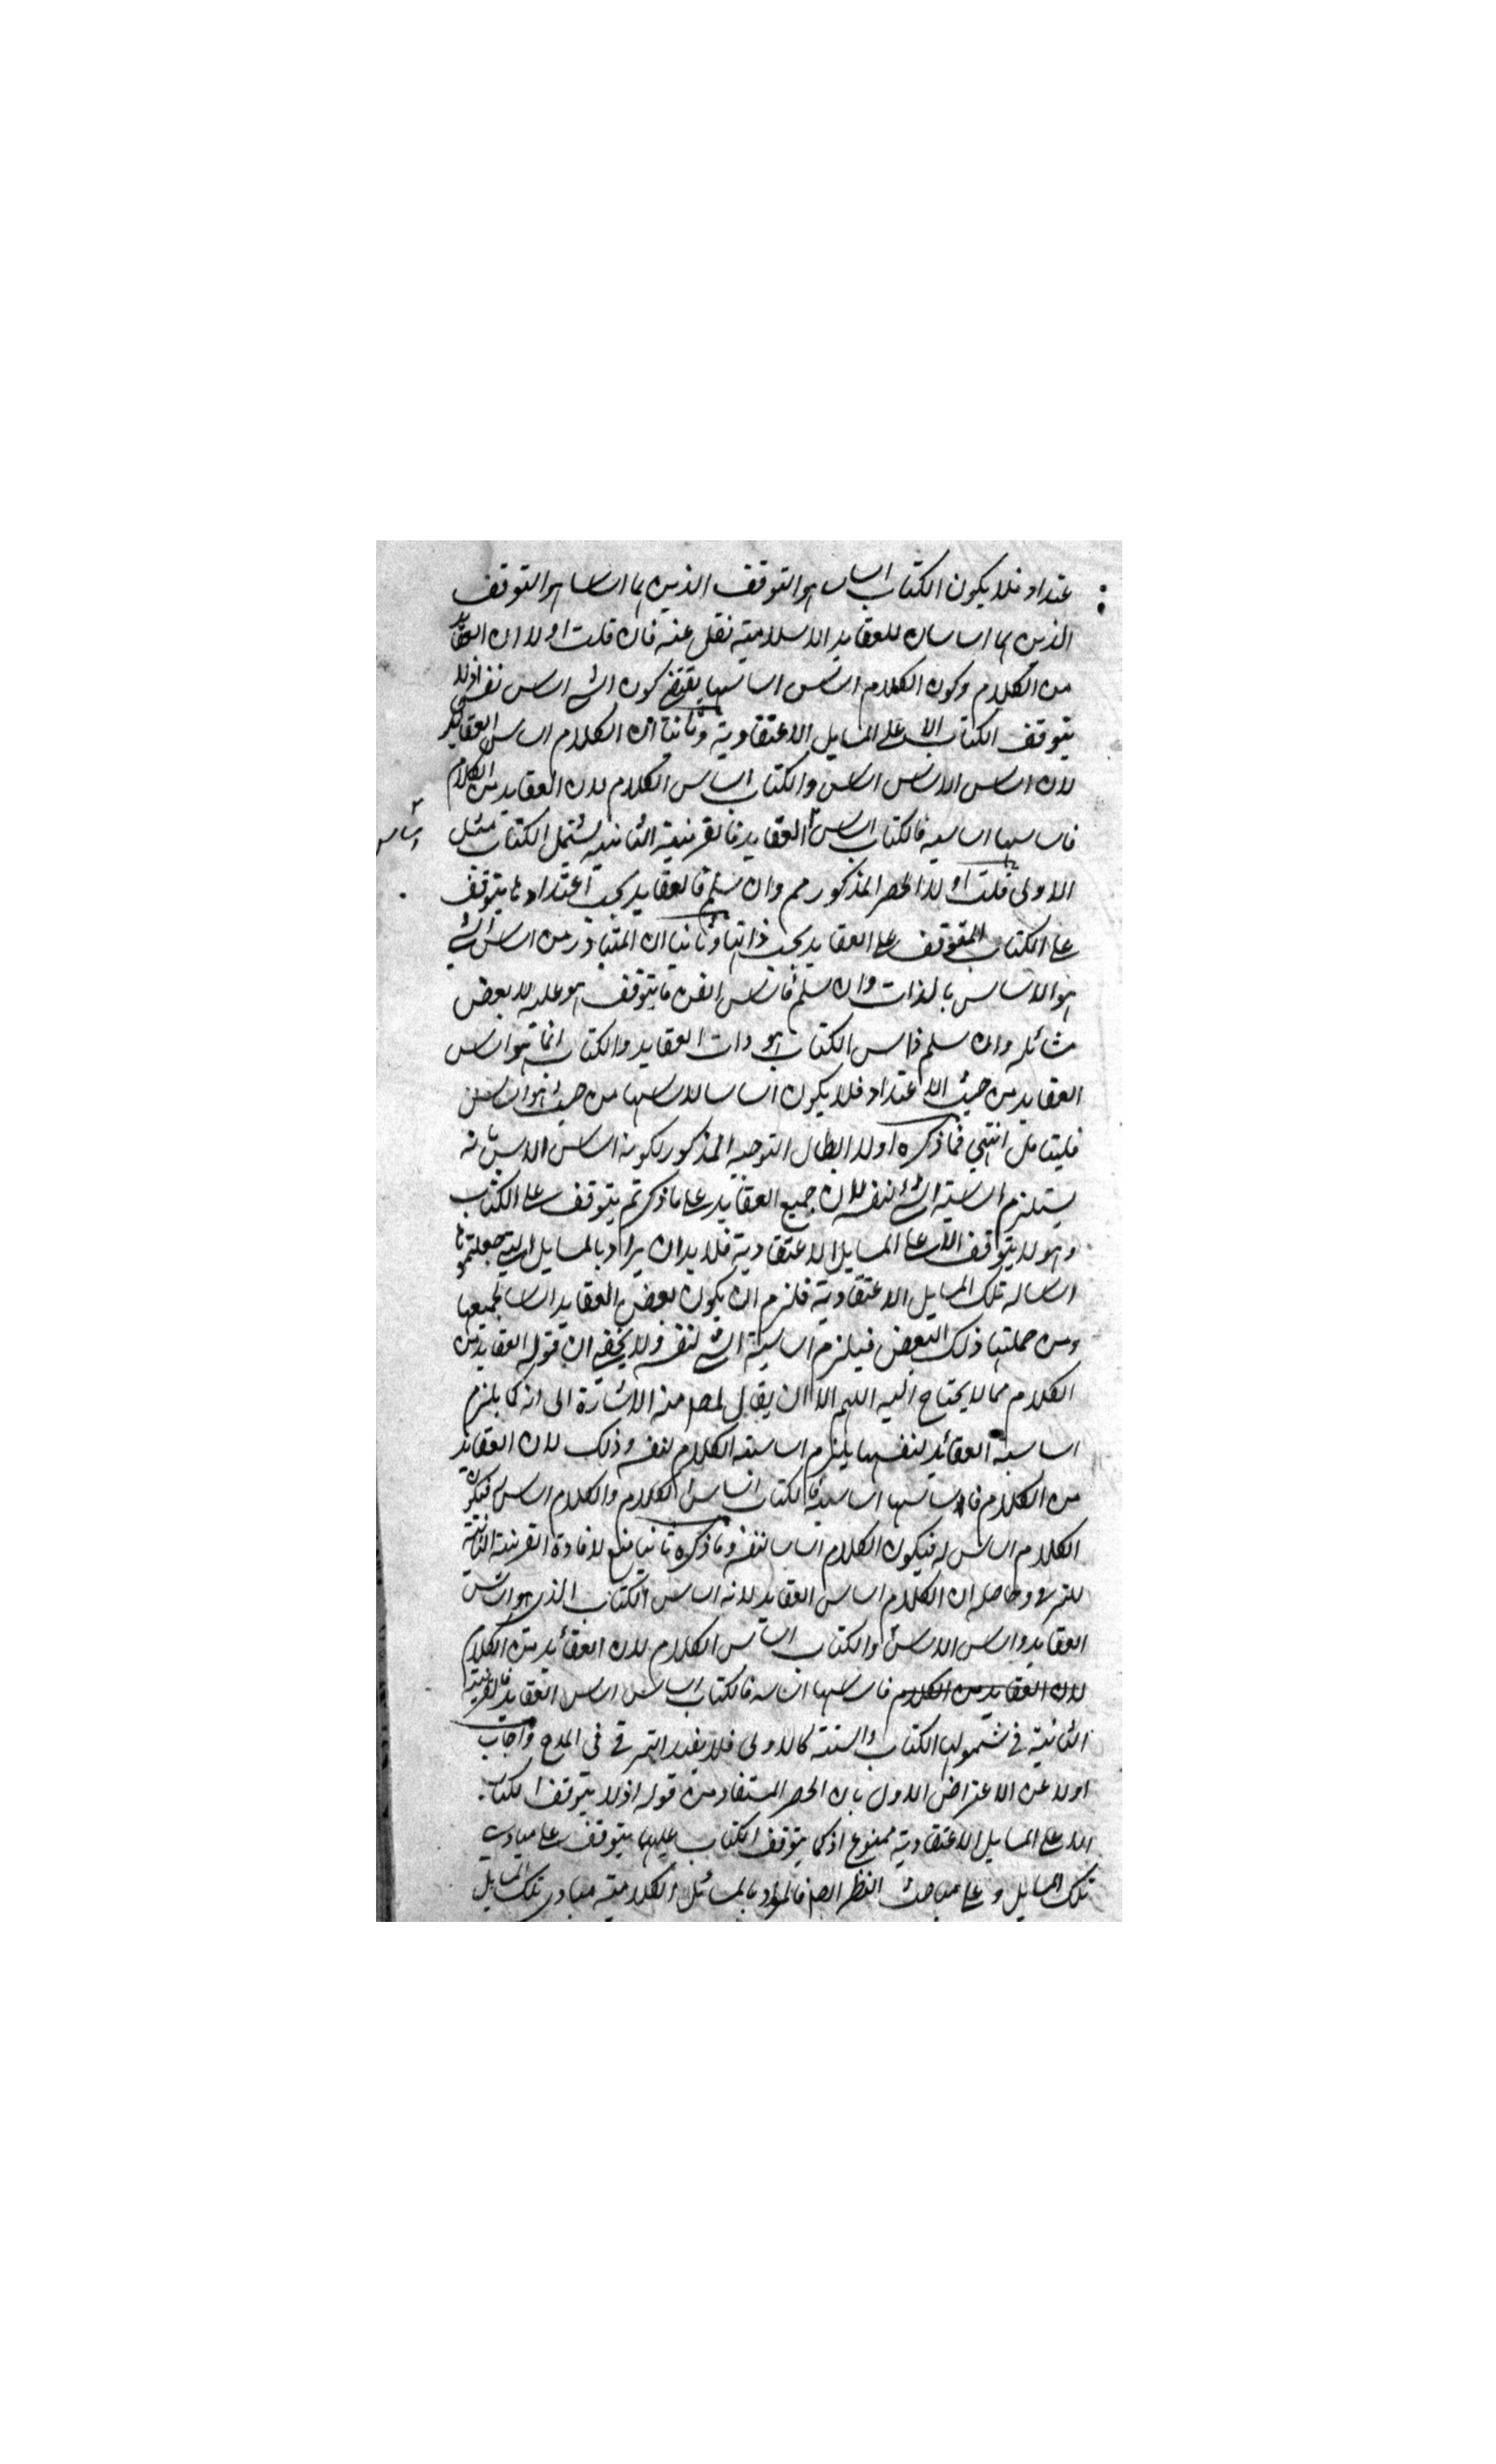 عتداد فلا يكون الكتاب اساس هو التوقف الذين هما اساسا هو التوقف
الذين هما اساسان للعقايد الاسلامية نقل عنه فان قلت اولا ان العقايد
من الكلام وكون الكلام اساس اساسها يقتضي كون الشي اساس نفسه اذ لا
يتوقف الكتاب الا على المسايل الاعتقادية وثانيا ان الكلام اساس العقايد
لان اساس الاساس اساس والكتاب اساس الكلام لان العقايد من الكلام
فاساسها اساسه فالكتاب اساس العقايد فالقرينة الثانية يشتمل الكتاب مثل
اساس
الاولى قلت اولا الحصر المذكور مم وان سلم فالعقايد بحسب اعتدادها يتوقف
على الكتاب المتوقف على العقايد بحسب ذاتها وثانيا ان المتبادر من اساس الشي
هو الاساس بالذات وان سلم فاساس الفن ما يتوقف هو عليه لا بعض
مسائله وان سلم فاساس الكتاب هو ذات العقايد والكتاب انما هو اساس
العقايد من حيث الاعتداد فلا يكون اساسا لاساسها من حيث هو اساس
فليتامل انتهى فما ذكره اولا ابطال التوجيه المذكور لكونه اساس الاساس بانه
يستلزم اساسية الشي لنفسه لان جميع العقايد على ما ذكرتم يتوقف على الكتاب
وهو لا يتوقف الا على المسايل الاعتقادية فلا بد ان يراد بالمسايل التي جعلتموها
اساسا له تلك المسايل الاعتقادية فلزم ان يكون بعض العقايد اساسا لجميعها
ومن جملتها ذلك البعض فيلزم اساسية الشي لنفسه ولا يخفى ان قوله العقايد من
الكلام مما لا يحتاج اليه اللهم الا ان يقال منه الاشارة الى انه كما يلزم
اساسية العقائد لنفسها يلزم اساسية الكلام لنفسه وذلك لان العقايد
من الكلام فاساسها اساسه فالكتاب اساس الكلام والكلام اساس فيكون
الكلام اساس له فيكون الكلام اساسا لنفسه وما ذكره ثانيا منع لافادة القرينة الثانية
للترقي وحاصله ان الكلام اساس العقايد لانه اساس الكتاب الذي هو اساس
العقايد واساس الاساس والكتاب اساس الكلام لان العقائد من الكلام
لان العقايد من الكلام فاساسها اساسه فالكتاب اساس اساس العقايد فالقرينة
الثانية في شمولها الكتاب والسنة كالاولى فلا يفيد الترقي في المدح واجاب
اولا عن الاعتراض الاول بان الحصر المستفاد من قوله اذ لا يتوقف الكتاب
الا على المسايل الاعتقادية ممنوع اذ كما يتوقف الكتاب عليها يتوقف على مبادي
تلك المسايل وعلى مباحث النظر ايضا فالمراد بالمسائل الكلامية مبادي تلك المسايل